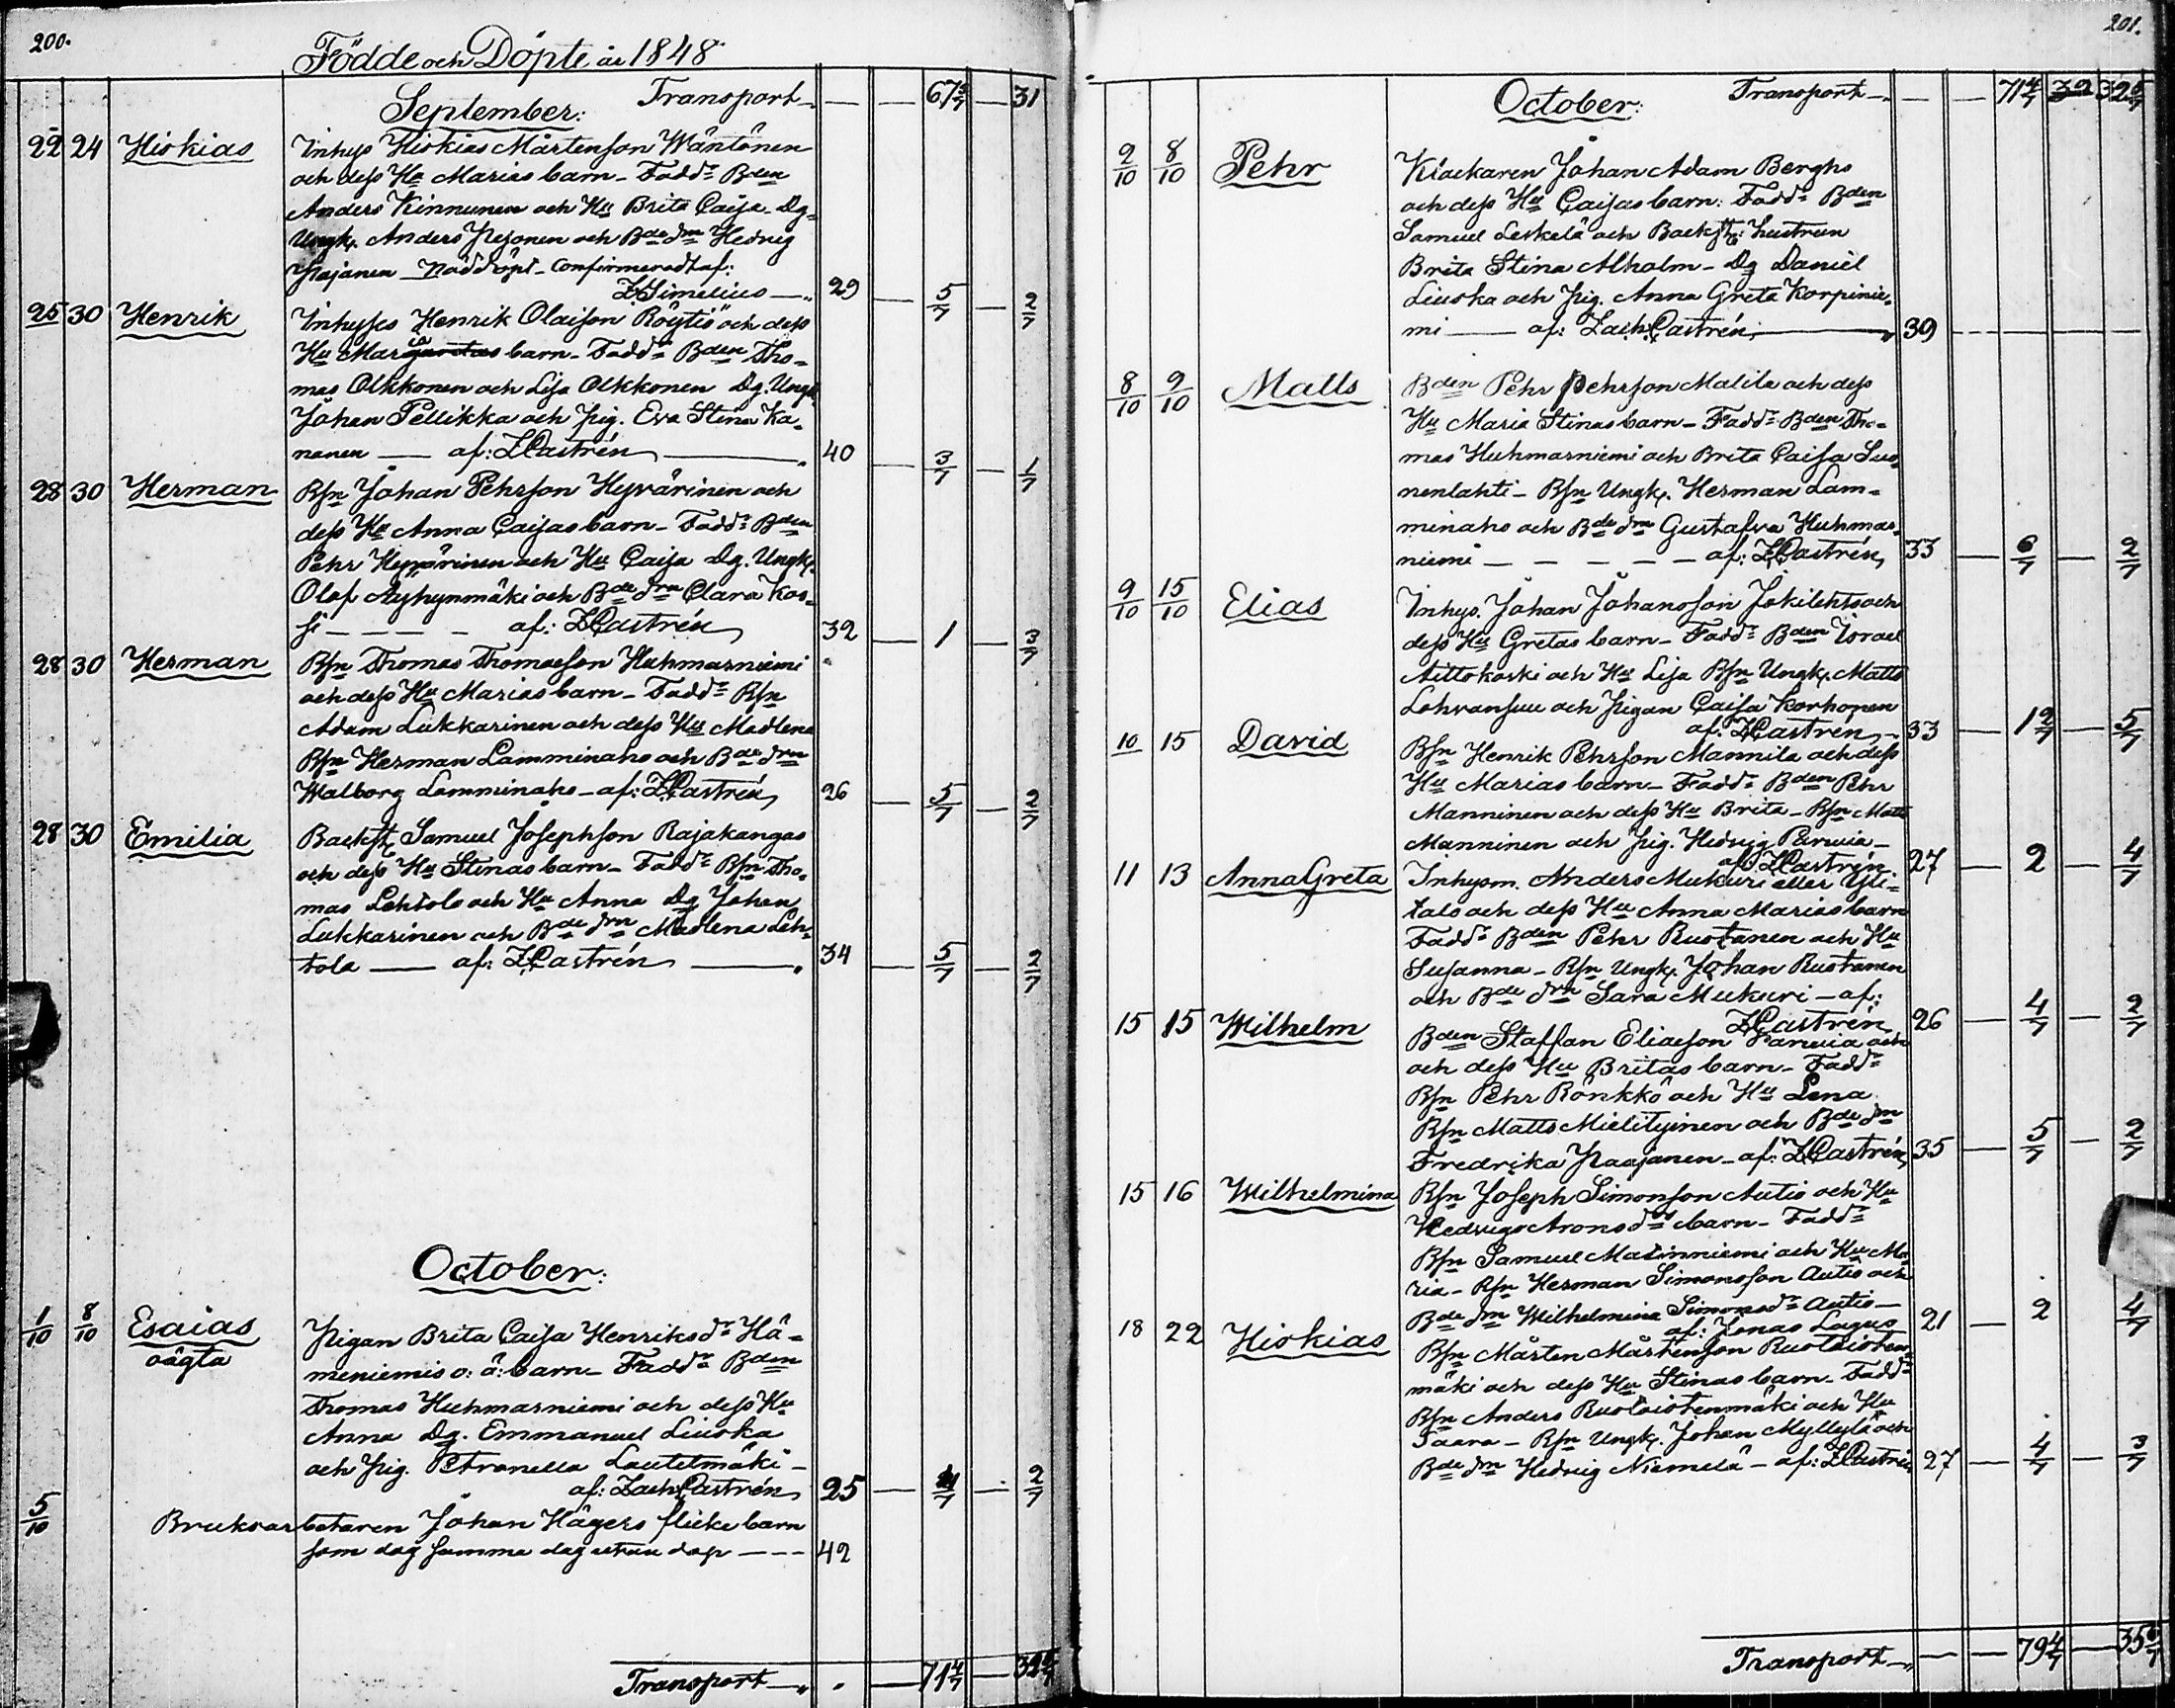 200.
Födde och Döpte år 1848
September: Transport — — 67 5/7 — 31
22 24 Hiskias Inhys Hiskias Mårtensson Wäntönen
och dess Hu Marias barn - Faddr Bden
Anders Kinnunen och Hu Brita Caisa - Dg
Ungk. Anders Pesonen och Bde dm Hedvig
Pajanen - Nöddöpt - Confirmeradt af:
Simelius — 29 — 5/7 — 2/7
25 30 Henrik Inhyses Henrik Olaison Röytiö och dess
Hu Marias barn - Faddr Bden Tho-
mas Olkkonen och Lisa Olkkonen Dg. Ungk.
Johan Pellikka och pig. Eva Stina Ka-
nanen — af: ZCastrén 40 — 3/7 — 1/7
28 30 Herman Bsn Johan Pehrson Hyvärinen och
dess Hu Anna Caisas barn - Faddr Bden
Pehr Hyvärinen och Hu Caisa Dg. Ungk.
Olof Ayhynmäki och Bde dm Clara Kos-
si — — — — af: ZCastrén 32 — 1 — 3/7
28 30 Herman Bsn Thomas Thomasson Huhmarniemi
och dess Hu Marias barn - Faddr Bsn
Adam Lukkarinen och dess Hu Madlena
Bsn Herman Lamminaho och Bde dm
Walborg Lamminaho - af: ZCastrén 26 — 5/7 — 2/7
28 30 Emilia Backst Samuel Josephson Rajakangas
och dess Hu Stinas barn - Faddr Bsn Tho-
mas Lehtola och Hu Anna Dg Johan
Lukkarinen och Bde dm Madlena Leh-
tola — af: ZCastrén — 34 — 5/7 — 2/7
October:
1/10 8/10 Esaias Pigan Brita Caisa Henriksdr Hä-
oägta meniemis o: ä: barn - Faddr Bden
Thomas Huhmarniemi och dess Hu
Anna Dg. Emmanuel Liuska
och pig. Petronella Lautetmäki -
af: Zach Castrén 25 — 4/7 — 2/7
5/10 Bruksarbetaren Johan Hägers flicke barn
som dog samma dag utan dop — — — 42
Transport — — 71 4/7 — 32 6/7
201.
October: Transport — — — 71 4/7 32 32 6/7
2/10 8/10 Pehr Klockaren Johan Adam Berghs
och dess Hu Caisas barn: Faddr Bden
Samuel Leskelä och Backst: hustrun
Brita Stina Alholm - Dg Daniel
Liuska och pig. Anna Greta Korpinie-
mi — af: Zach Castrén — 39
8/10 9/10 Matts Bden Pehr Pehrson Malila och dess
Hu Maria Stinas barn - Faddr Bden Tho-
mas Huhmarniemi och Brita Caisa Suo-
nenlahti - Bsn Ungk. Herman Lam-
minaho och Bde dm Gustafva Huhmar-
niemi — — — — — af: ZCastrén 33 — 6/7 — 2/7
9/10 15/10 Elias Inhys. Johan Johansson Jokilehto och
dess Hu Gretas barn - Faddr Bden Israel
Aittokoski och Hu Lisa Bsn Ungk. Matts
Lohvansuu och pigan Caisa Korhonen
af: ZCastrén 33 — 1 2/7 — 5/7
10 15 David Bsn Henrik Pehrson Mannila och dess
Hu Marias barn - Faddr Bden Pehr
Manninen och dess Hu Brita - Bsn Matts
Manninen och pig. Hedvig Parvia -
af: ZCastrén 27 — 2 — 4/7
11 13 Anna Greta Inhysm. Anders Mukuri eller Yli-
talo och dess Hu Anna Marias barn
Faddr Bden Pehr Rustanen och Hu
Susanna - Bsn Ungk. Johan Rustanen
och Bde dm Sara Mukuri - af:
ZCastrén 26 — 4/7 — 2/7
15 15 Wilhelm Bden Staffan Eliasson Parvia och
och dess Hu Britas barn - Faddr
Bsn Pehr Rönkkö och Hu Lena
Bsn Matts Mielityinen och Bde dm
Fredrika Paajanen - af: ZCastrén 35 — 5/7 — 2/7
15 16 Wilhelmina Bsn Joseph Simonson Autio och Hu
Hedvigs Aronsdr barn - Faddr
Bsn Samuel Matinniemi och Hu Ma-
ria - Bsn Herman Simonsson Autio och
Bde dm Wilhelmina Simonsdr Autio -
af: Jonas Lagus 21 — 2 — 4/7
18 22 Hiskias Bsn Mårten Mårtenson Ruotoisten-
mäki och dess Hu Stinas barn - Faddr
Bsn Anders Ruotoistenmäki och Hu
Saara - Bsn Ungk. Johan Myllylä och
Bde dm Hedvig Niemelä - af: ZCastrén 27 — 4/7 — 3/7
Transport — — — 79 4/7 — 35 6/7